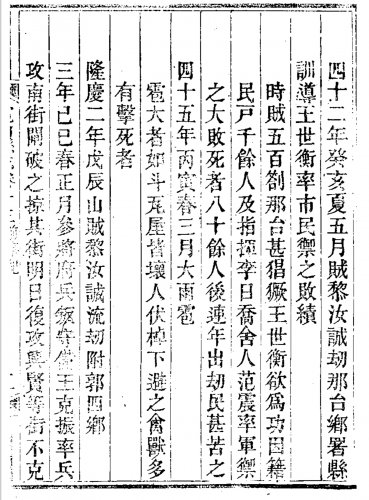 四十二年癸亥夏五月賊黎汝誠刼那台鄉署縣
訓導王世衡率市民禦之敗績
時賊五百劄那台甚猖獗王世衡欲為功因籍
民戶千餘人及指揮李日喬舍人范震率軍禦
之大敗死者八十餘人後連年出刼民甚苦之
四十五年丙寅春三月大雨雹
雹大者如斗瓦屋皆壞人伏棹下避之禽獸多
有擊死者
隆慶二年戊辰山賊黎汝誠流刼附郭四鄉
三年己巳春正月參將府兵叛守備王克振率兵
攻南街閘破之掠其街明日復攻興賢等街不克